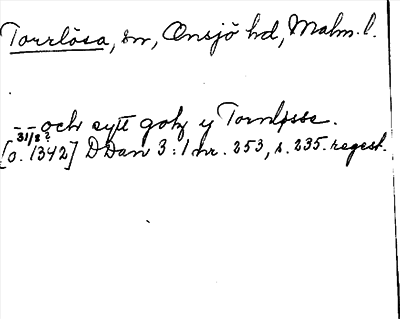 Torrlösa, sn, Onsjö hd, Malm. l.
– – och sytt gotz y Tornløsse.
31/8?
[o. 1342] DDan 3:1 nr. 253, s. 235. regest.